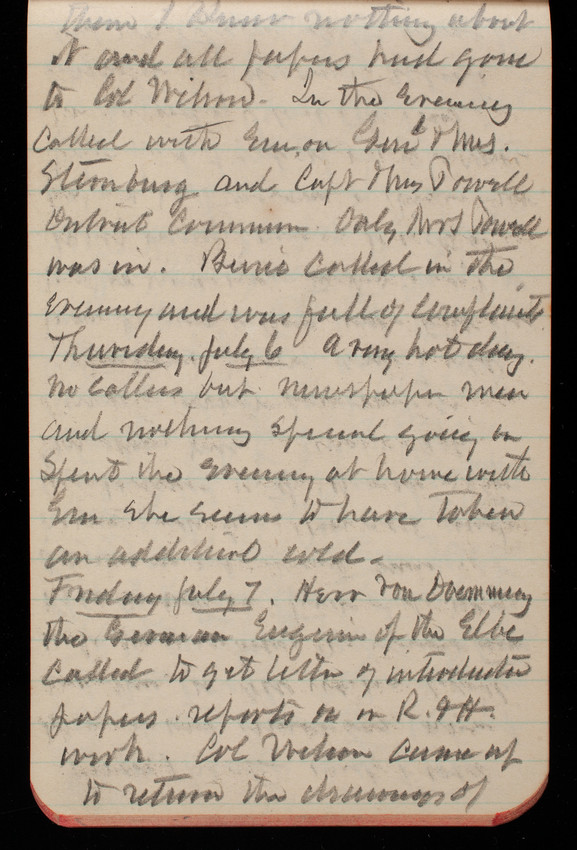 them I knew nothing about
it and all papers had gone
to Col Wilson. In the evening
Called with Em, on Genl & Mrs.
Sternburg and Capt & Mrs Powell
District Commr. Only Mrs Powell
was in. called in the
evening and was full of complaints
Thursday, July 6 A very hot day.
No callers but newspaper men
and nothing special going on
Spent the evening at home with
Em She seems to have taken
an additional cold.
Friday July 7. Herr Von
the German Engineer of the Elbe
Called to get letter of introduction
papers. reports on R. & H.
work. Col Wilson came up
to return the drawings of